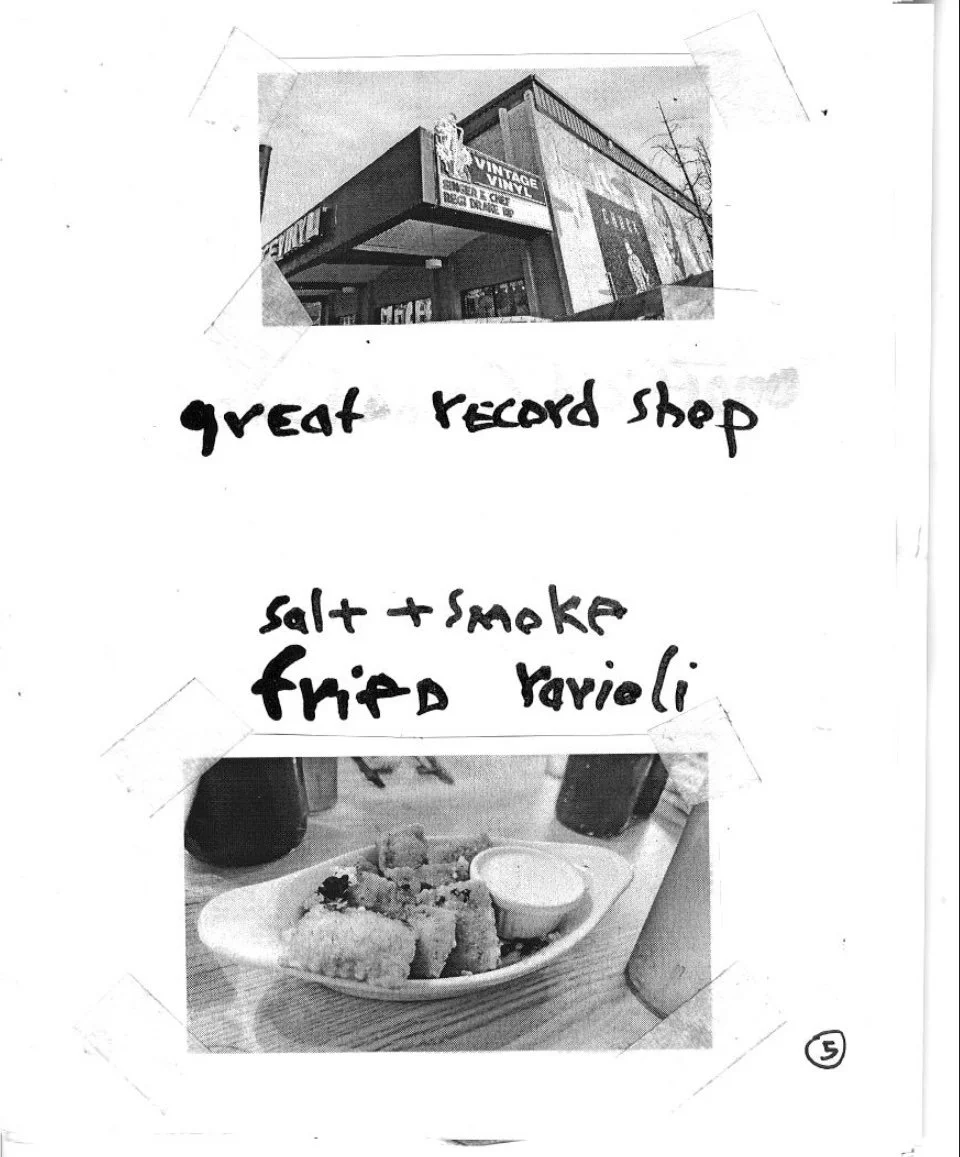 VINTAGE
VINYL
great record shop
salt + smoke
fried ravioli
5